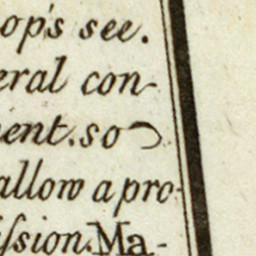 op's see.
eral con-
ent. so
allow a pro-
ſsion. Ma-